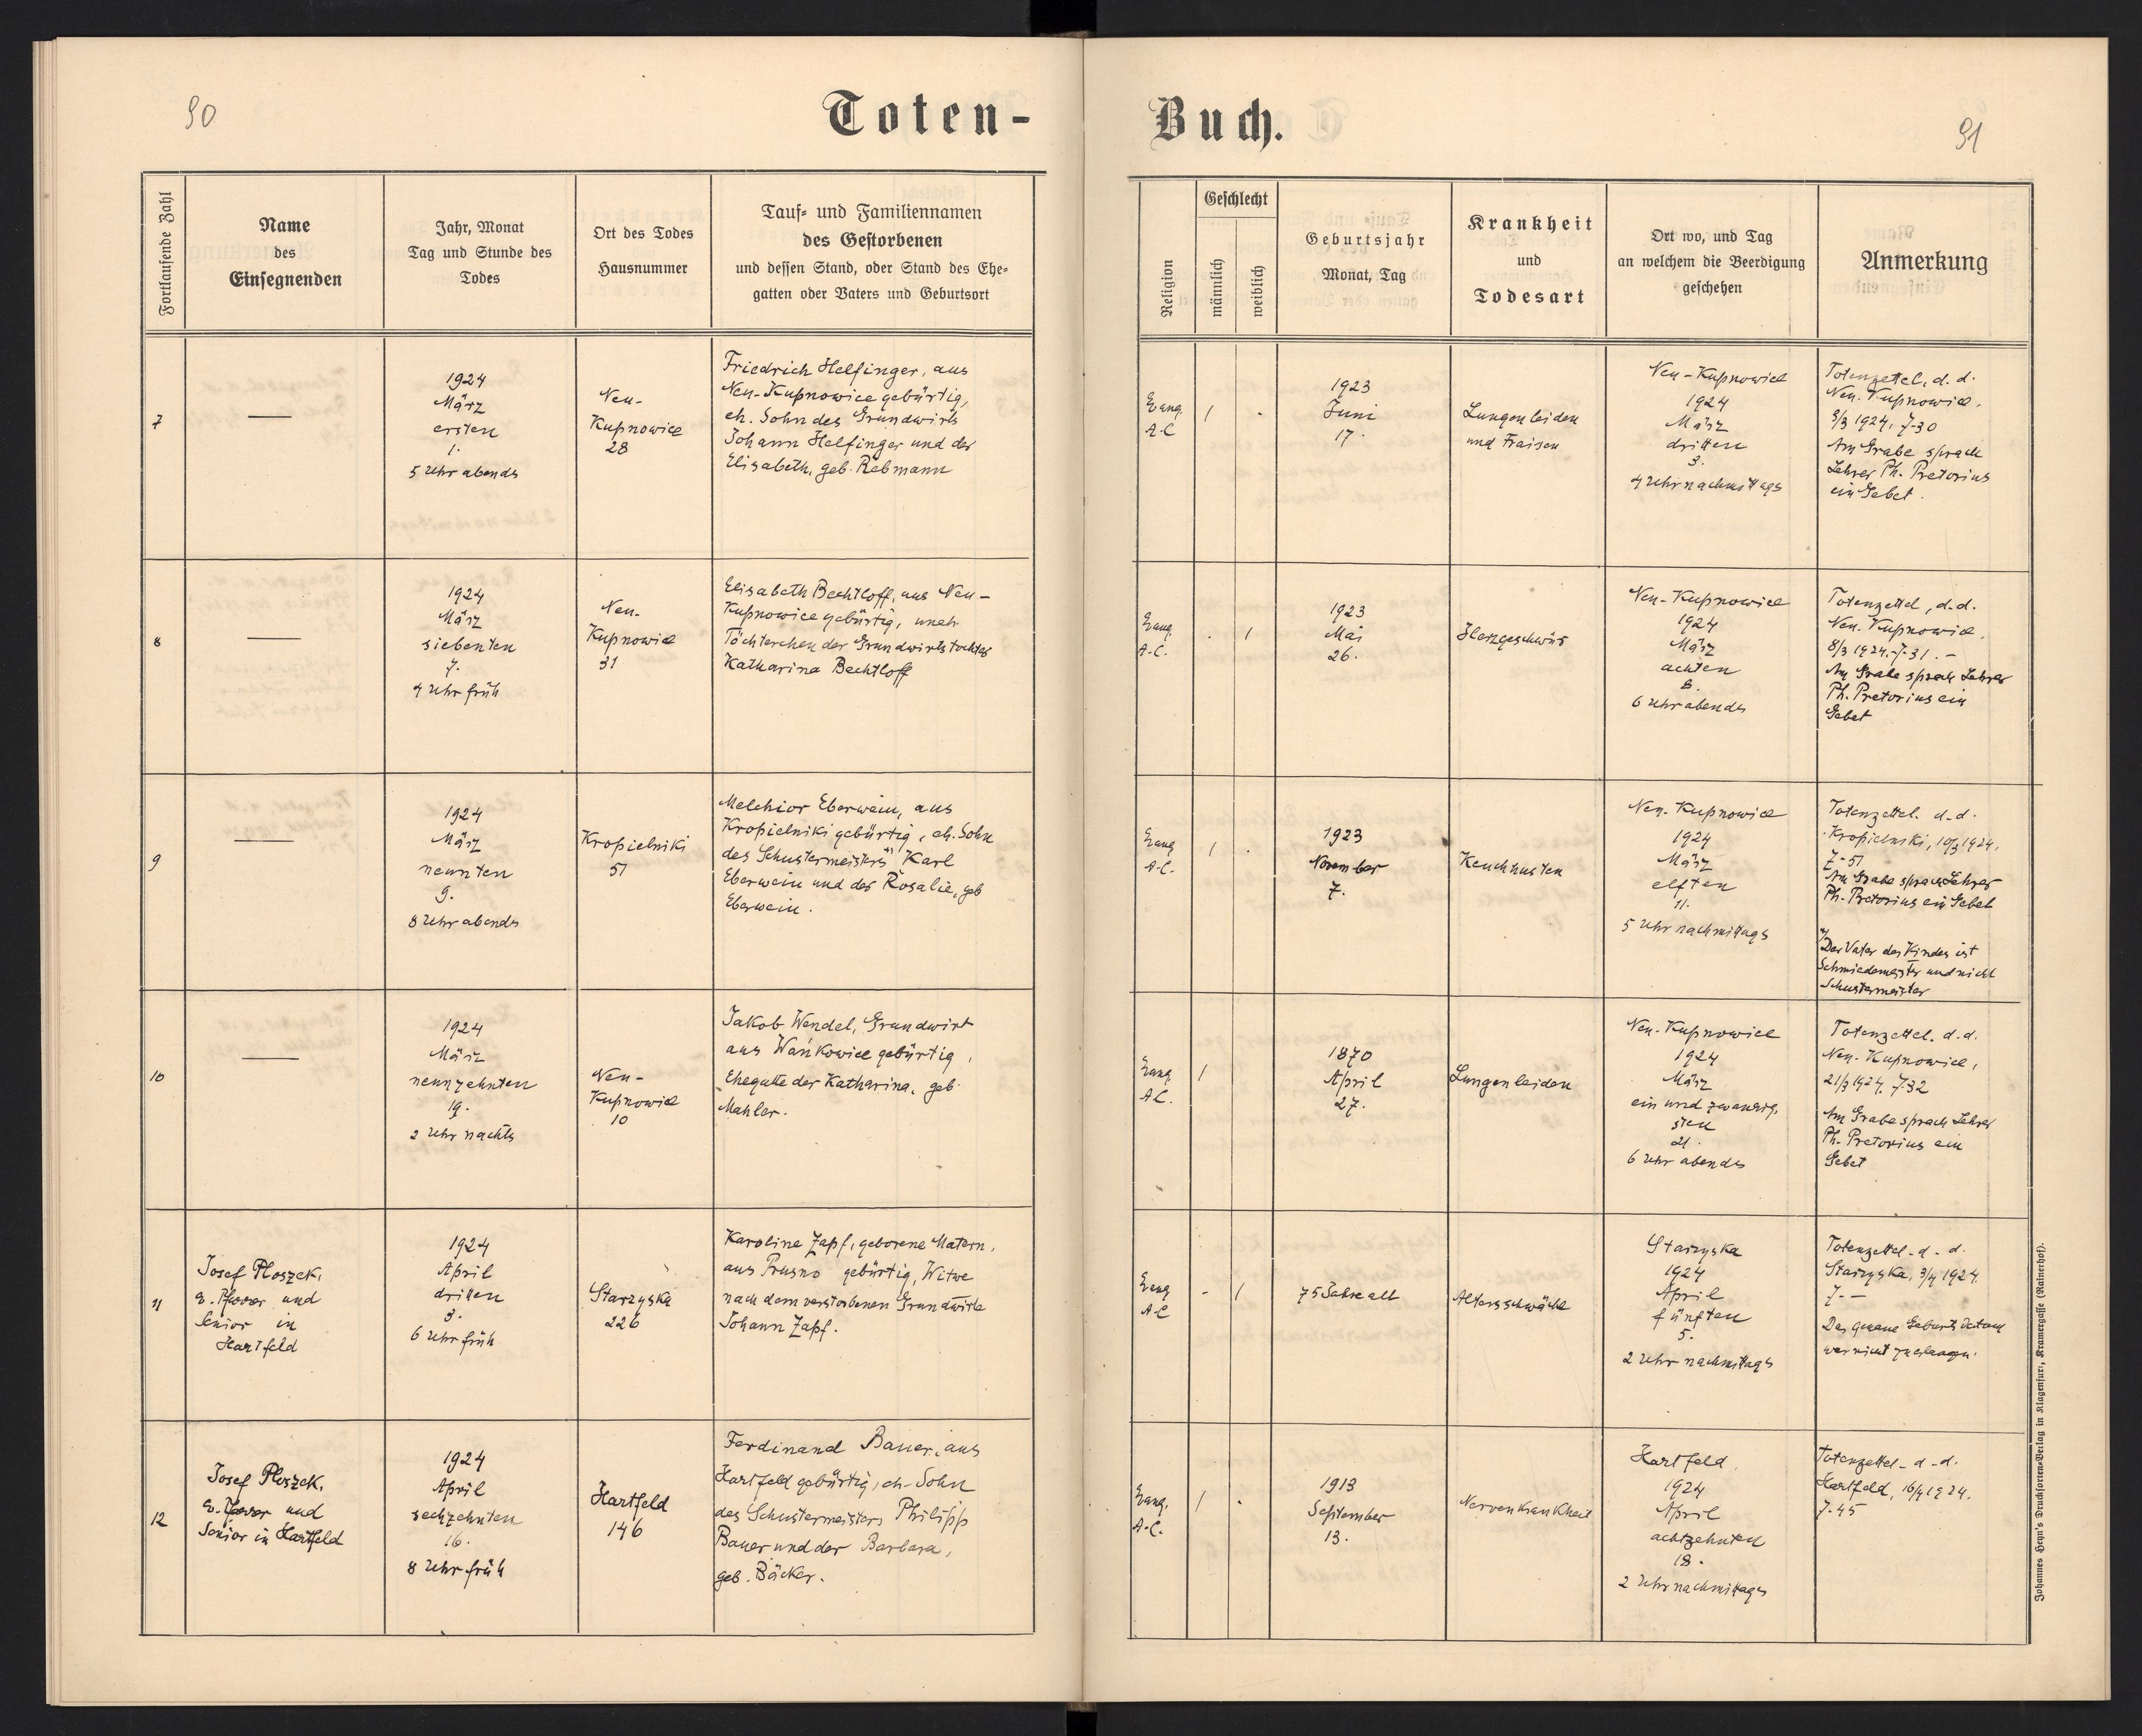 90
Toten-
Fortlaufende Zahl
Name
des
Einsegnenden
Jahr, Monat
Tag und Stunde des
Todes
Ort des Todes
Hausnummer
Tauf- und Familiennamen
des Gestorbenen
und dessen Stand, oder Stand des Ehe-
gatten oder Vaters und Geburtsort
7
—
1924
März
ersten
1.
5 Uhr abends
Neu-
Kupnowice
28
Friedrich Helfinger, aus
Neu-Kupnowice gebürtig,
eh. Sohn des Grundwirts
Johann Helfinger und der
Elisabeth, geb. Rebmann
8
—
1924
März
siebenten
7.
4 Uhr früh
Neu-
Kupnowice
31
Elisabeth Bechtloff, aus Neu-
Kupnowice gebürtig, uneh.
Töchterchen der Grundwirtstochter
Katharina Bechtloff
9
—
1924
März
neunten
9.
8 Uhr abends
Kropielniki
51
Melchior Eberwein, aus
Kropielniki gebürtig, eh. Sohn
des Schustermeisters *) Karl
Eberwein und der Rosalie, geb
Eberwein.
10
—
1924
März
neunzehnten
19.
2 Uhr nachts
Neu-
Kupnowice
10
Jakob Wendel, Grundwirt
aus Wańkowice gebürtig,
Ehegatte der Katharina, geb.
Mahler.
11
Josef Ploszek,
ev. Pfarrer und
Senior in
Hartfeld
1924
April
dritten
3.
6 Uhr früh
Starzyska
226
Karoline Zapf, geborene Matern,
aus Prusno gebürtig, Witwe
nach dem verstorbenen Grundwirte
Johann Zapf.
12
Josef Ploszek,
ev. Pfarrer und
Senior in Hartfeld
1924
April
sechzehnten
16.
8 Uhr früh
Hartfeld
146
Ferdinand Bauer, aus
Hartfeld gebürtig, eh. Sohn
des Schustermeisters Philipp
Bauer und der Barbara,
geb. Bäcker.
Buch.
91
Religion
Geschlecht
männlich
weiblich
Geburtsjahr
Monat, Tag
Krankheit
und
Todesart
Ort wo, und Tag
an welchem die Beerdigung
geschehen
Anmerkung
Evang.
A.C
/
.
1923
Juni
17.
Lungenleiden
und Fraisen
Neu-Kupnowice
1924
März
dritten
3.
4 Uhr nachmittags
Totenzettel, d. d.
Neu-Kupnowice,
3/3 1924, 7-30
Am Grabe sprach
Lehrer Ph. Pretorius
ein Gebet.
Evang.
A.C.
.
/
1923
Mai
26.
Herzgeschwür
Neu-Kupnowice
1924
März
achten
8.
6 Uhr abends
Totenzettel, d.d.
Neu-Kupnowice,
8/3 1924. 7-31.-
Am Grabe sprach Lehrer
Ph. Pretorius ein
Gebet
Evang
A.C.
/
.
1923
November
7.
Keuchhusten
Neu-Kupnowice
1924
März
elften
11.
5 Uhr nachmittags
Totenzettel. d.d.
Kropielniki, 10/3 1924,
7-51
Am Grabe sprach Lehrer
Ph. Pretorius ein Gebet
*)
Der Vater des Kindes ist
Schmiedemeister und nicht
Schustermeister
Evang.
A.C.
/
1870
April
27.
Lungenleiden
Neu-Kupnowice
1924
März
ein und zwanzig-
sten
21.
6 Uhr abends
Totenzettel. d.d.
Neu-Kupnowice,
21/3 1924, 7-32
Am Grabe sprach Lehrer
Ph. Pretorius ein
Gebet
Evang
A.C
-
/
75 Jahre alt
Altersschwäche
Starzyska
1924
April
fünften
5.
2 Uhr nachmittags
Totenzettel - d - d.
Starzyska, 3/4 1924.
7.-
Das genaue Geburtsdatum
war nicht zu erlangen.
Evang.
A.C.
/
.
1913
September
13.
Nervenkrankheit
Hartfeld
1924
April
achtzehnten
18.
2 Uhr nachmittags
Totenzettel - d - d.
Hartfeld, 16/4 1924.
7.45
Johannes Heyn's Drucksorten-Verlag in Klagenfurt, Kramergasse (Rainerhof).